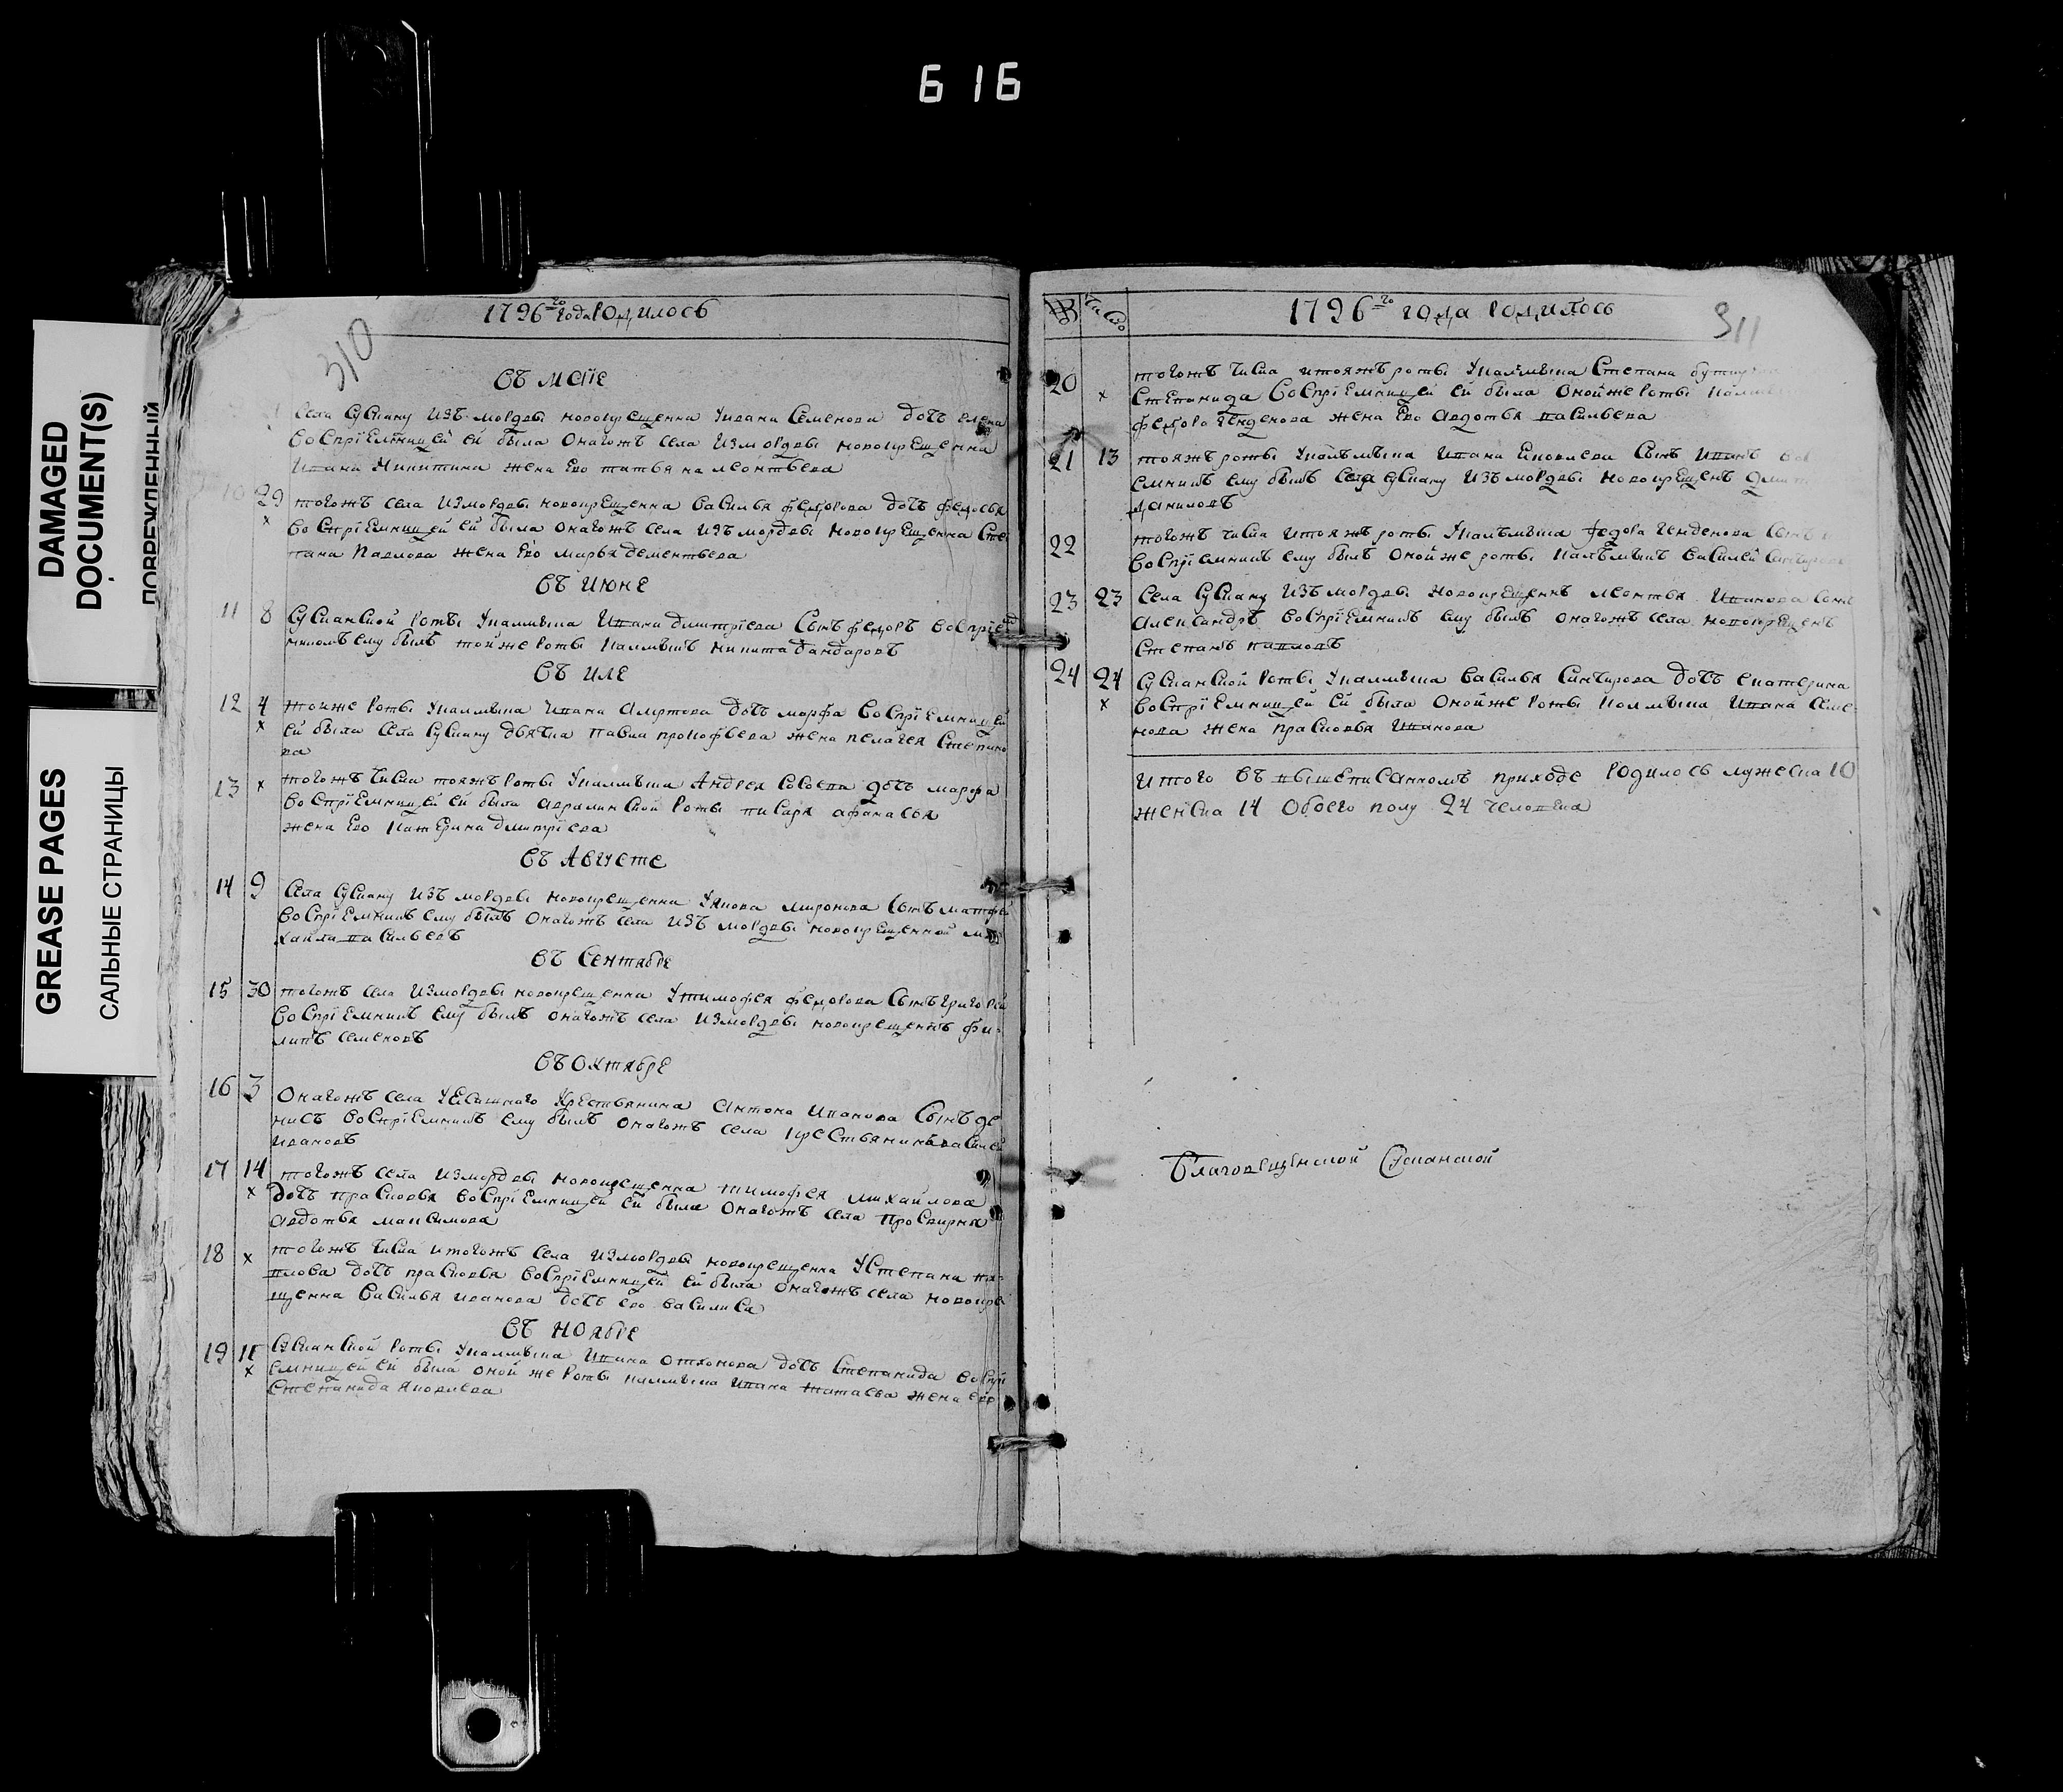 616
DAMAGED
DOCUMENT(S)
ПОВРЕЖДЕННЫЙ
GREASE PAGES
САЛЬНЫЕ СТРАНИЦЫ
310
1796го года родилось
въ маіе
Села Сускану изъ мордвы новокрещенна Уивана Семенова дочь елена
воспріемницей ей была онагожъ села измордвы новокрещенна
ивана Никитина жена Ево татьяна леонтьева
10 29 тогожъ села измордвы новокрещенна василья федорова дочь федосья
х воспріемницей ей была онагожъ села изъ мордвы новокрещенна Сте
пана Павлова жена Ево марья дементьева
въ июне
11 8 Сускан ской роты Укалмыка ивана дмитріева Сынъ федоръ воспріе
никомъ ему былъ тойже роты калмыкъ никита бандаровъ
въ иле
12 4 тойже роты Укалмыка ивана дочь марфа воспріемницей
х ей была села Сускану дьячка павла прокофьева жена пелагея Степано
ва
13 х тогожъ числа тояжъ роты Укалмыка Андрея дочь марфа
воспріемницей ей была авралин ской роты писаря афанасья
жена Ево катерина дмитріева
въ Августе
14 9 Села Сускану изъ мордвы новокрещенна Уякова миронова Сынъ матфей
воспріемникъ ему былъ онагожъ села изъ мордвы новокрещенной ми
хаила васильевъ
въ Сентябре
15 30 тогожъ села измордвы новокрещенна Утимофея федорова Сынъ григорей
воспріемникъ ему былъ онагожъ села измордвы новокрещенъ фи-
липъ семеновъ
въ Октябре
16 3 Онагожъ села крестьянина антона иванова Сынъ де
нисъ воспріемникъ ему былъ онагожъ села крестьянинъ василей
ивановъ
17 14 тогожъ села измордвы новокрещенна тимофея михайлова
х дочь прасковья воспріемницей ей была онагожъ села просвирня
авдотья максимова
18 х тогожъ числа итогожъ села измордвы новокрещенна Устепана па-
влова дочь прасковья воспріемницей ей была онагожъ села новокре
щенна василья иванова дочь ево василиса
въ ноябре
19 Сускан ской роты Укалмыка ивана отхонова дочь Степанида воспрі
х емницей ей была оной же роты калмыка ивана жена ево
Степанида яковлева
число
1796го года родилось
311
20 тогожъ числа итояжъ роты Укалмыка Степана
х Степанида воспріемницей ей была онойже роты
федора генденова жена Ево авдотья васильева
21 13 тояжъ роты Укалъмыка ивана яковлева Сынъ иванъ
емникъ ему былъ села Сускану изъ мордвы новокрещенъ
даниловъ
22 тогожъ числа итояжъ роты Укалъмыка федора генденова Сынъ
воспріемникъ ему былъ онойже роты калъмыкъ василей
23 23 Села Сускану изъ мордвы новокрещенъ леонтья иванова Сынъ
александръ воспріемникъ ему былъ онагожъ села новокрещенъ
Степанъ павловъ
24 24 Сускан ской роты Укалмыка василья Санчирова дочь екатерина
х воспріемницей ей была онойже роты калмыка ивана Семе-
нова жена прасковья иванова
итого въ вышеписанномъ приходе родилось мужеска 10
женска 14 обоего полу 24 человека
благовещенской Сусканской